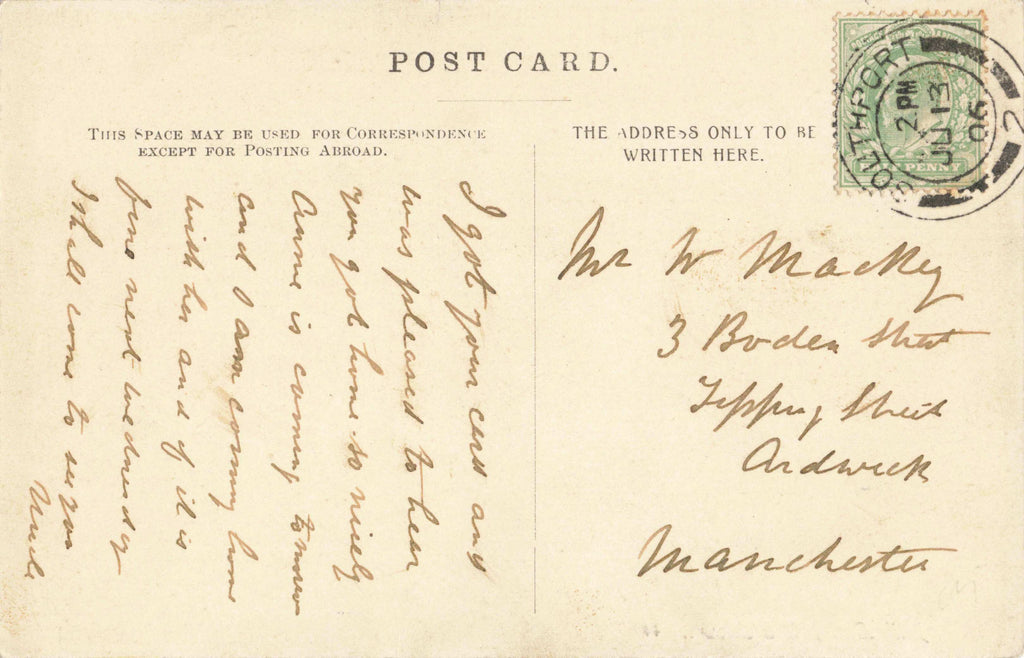 POST CARD.
THIS SPACE MAY BE USED FOR CORRESPONDENCE
EXCEPT FOR POSTING ABROAD.
THE ADDRESS ONLY TO BE
WRITTEN HERE.
SOUTHPORT
2 PM
JU 13
06
2
PENNY
I got your card and
was pleased to hear
you got home so nicely
Annie is coming tomorrow
and I am coming home
with her and if it is
fine next wednesday
I shall come to see you
Uncle
Mr W Mackey
3 Boden Street
Tipping Street
Ardwick
Manchester